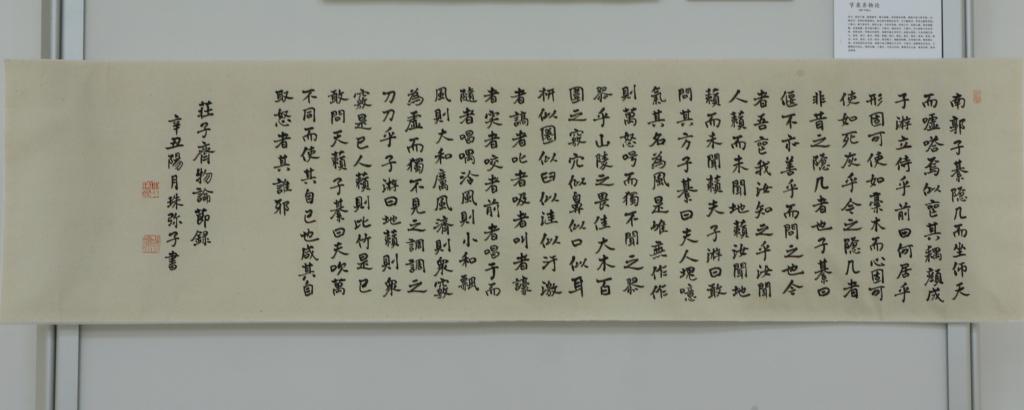 南郭子綦隱几而坐仰天
而噓嗒焉似喪其耦顏成
子游立侍乎前曰何居乎
形固可使如槀木而心固可
使如死灰乎今之隱几者
非昔之隱几者也子綦曰
偃不亦善乎而問之也今
者吾喪我汝知之乎汝聞
人籟而未聞地籟汝聞地
籟而未聞天籟夫子游曰敢
問其方子綦曰夫大塊噫
氣其名為風是唯無作作
則萬怒呺而獨不聞之翏
翏乎山陵之畏佳大木百
圍之竅穴似鼻似口似耳
枅似圈似臼似洼似汙激
者謞者叱者吸者叫者譹
者宎者咬者前者唱于而
隨者唱喁泠風則小和飄
風則大和厲風濟則眾竅
為虛而獨不見之調調之
刀刀乎子游曰地籟則眾
竅是已人籟則比竹是已
敢問天籟子綦曰夫吹萬
不同而使其自已也咸其自
取怒者其誰邪
莊子齊物論節錄
辛丑陽月珠弥子書